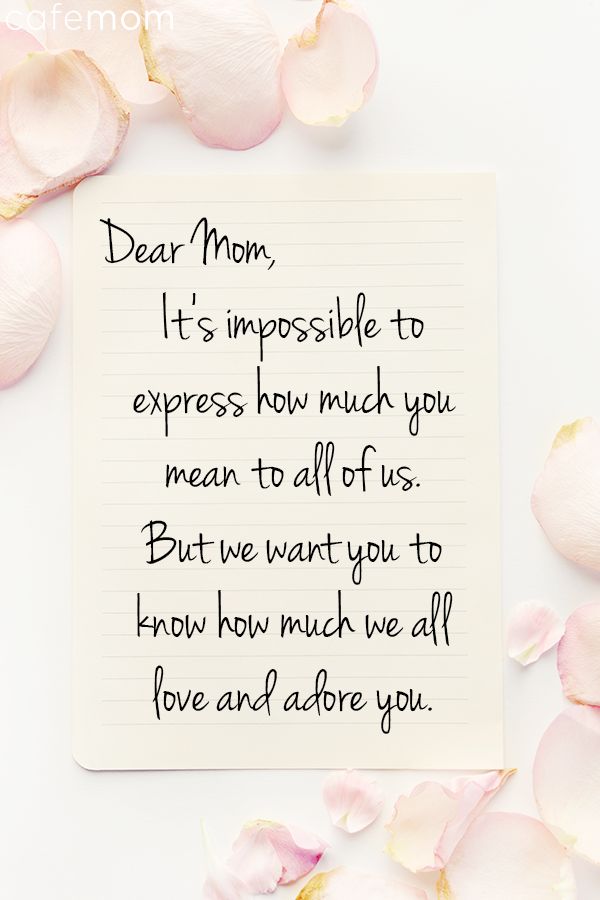 cafemom
Dear Mom,
It's impossible to
express how much you
mean to all of us.
But we want you to
know how much we all
love and adore you.